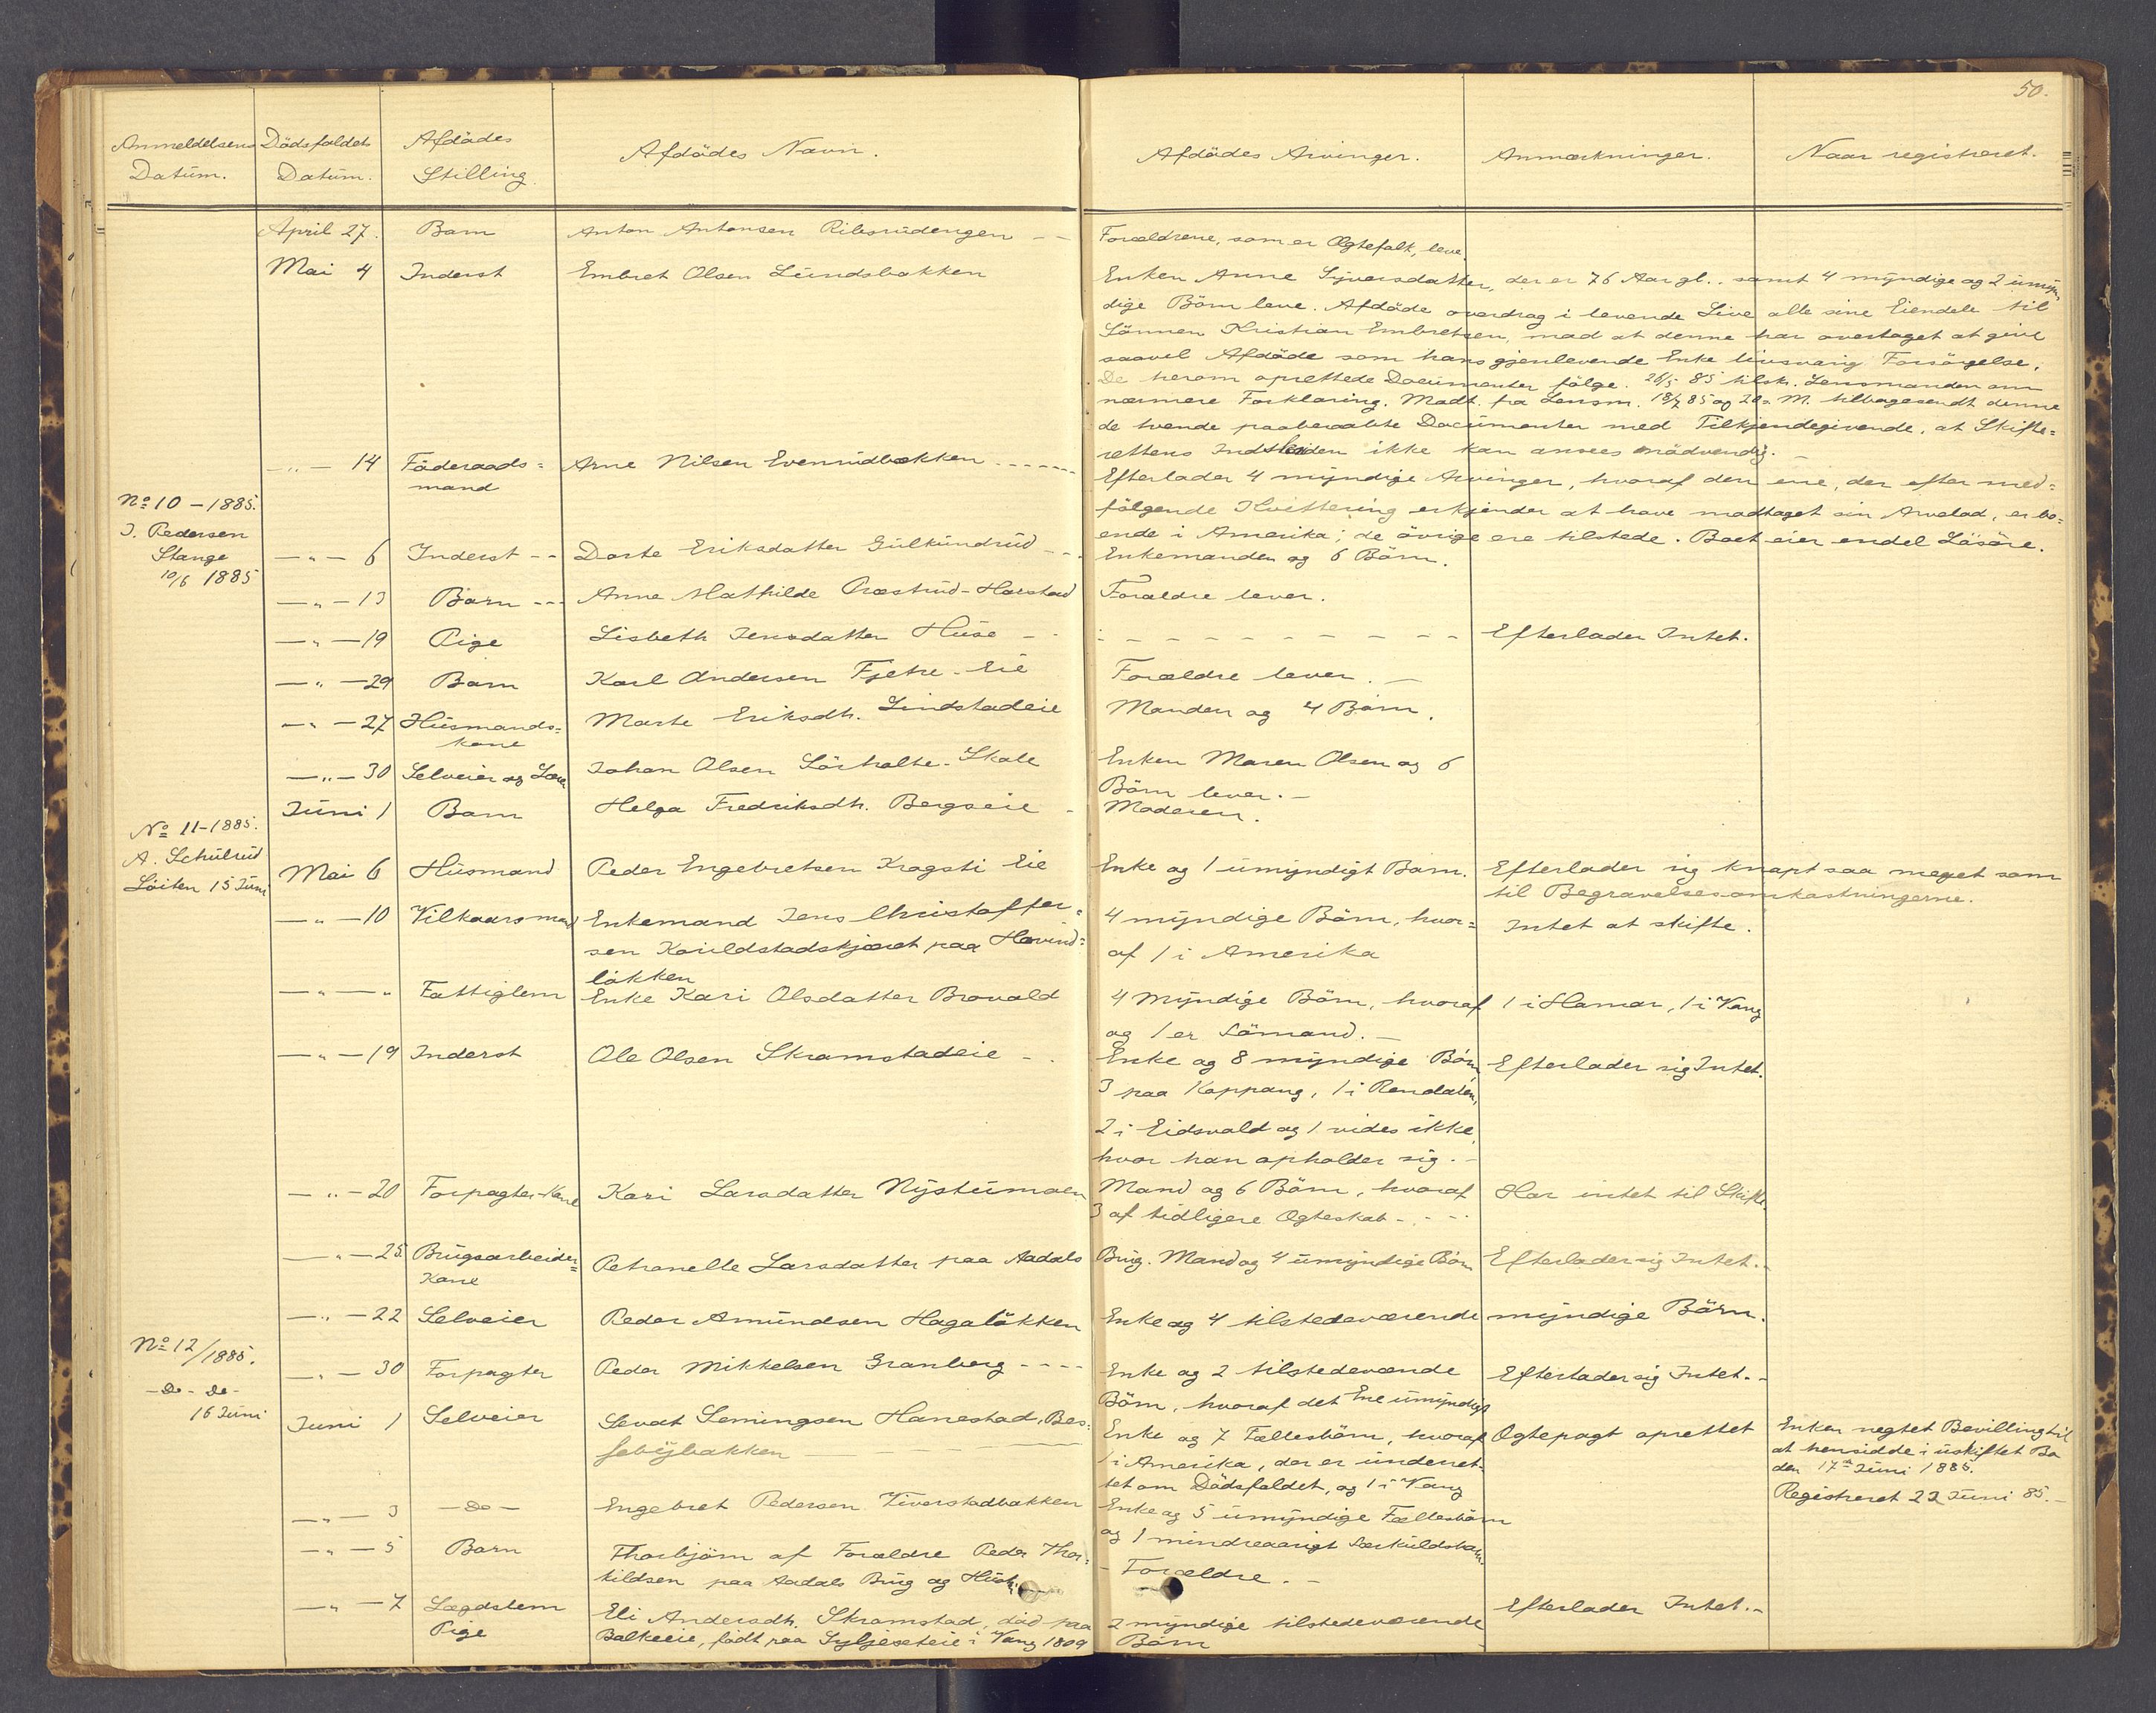 50.
Anmeldelsens Datum. Dödsfaldets Datum. Afdödes Stilling. Afdödes Navn. Afdödes Arvinger. Anmærkninger. Naar registreret.
April 27. Barn Anton Antonsen Ribsrudengen Forældrene, som er Ægtefolk, leve.
Mai 4 Inderst Embret Olsen Lundsbakken
Enken Anne Syversdatter, der er 76 Aar gl., samt 4 myndige og 2 umyn
dige Börn leve. Afdöde overdrog i levende Live alle sine Eiendele til
Sönnen Kristian Embretsen, mod at denne har overtaget at give
saavel Afdöde som hans gjenlevende Enke livsvarig Forsörgelse.
De herom oprettede Documenter fölge. 26/5 85 tilsk. Lensmanden om
nærmere Forklaring. Modt. fra Lensm. 18/7 85 og 20 s. M. tilbagesendt denne
de tvende paaberaabte Documenter med Tilkjendegivende, at Skifte=
rettens Indskriden ikke kan ansees nödvendig.
— „ — 14 Föderaads= mand Arne Nilsen Evenrudbakken
Efterlader 4 myndige Arvinger, hvoraf den ene, der efter med=
fölgende Kvittering erkjender at have modtaget sin Arvelod, er bo=
ende i Amerika; de övrige ere tilstede. Boet eier endel Lösöre.
No 10 - 1885.
J. Pedersen
Stange
10/6 1885
— „ — 6 Inderst Dorte Eriksdatter Gulkundrud Enkemanden og 6 Börn.
— „ — 13 Barn Anne Mathilde Præstrud-Harstad Forældre lever.
— „ — 19 Pige Lisbeth Jensdatter Huse Efterlader Intet.
— „ — 29 Barn Karl Andersen Fjetre-Eie Forældre lever.
— „ — 27 Husmands= kone Marte Eriksdtr. Lindstadeie Manden og 4 Börn.
— „ — 30 Selveier og Johan Olsen Sörholte-Skole Enken Maren Olsen og 6
Börn lever.
Juni 1 Barn Helga Fredriksdtr. Bergseie Moderen.
No 11-1885.
A. Schulrud
Löiten 15 Juni
Mai 6 Husmand Peder Engebretsen Kragsti Eie Enke og 1 umyndigt Barn. Efterlader sig knapt saa meget som
til Begravelsesomkostningerne.
— „ — 10 Vilkaarsmand Enkemand Jens Christoffer= 4 myndige Börn, hvor= Intet at skifte.
sen Kaarildstadskjæret paa Hovind= af 1 i Amerika
lökken
— „ — „ Fattiglem Enke Kari Olsdatter Brovald 4 Myndige Börn, hvoraf 1 i Hamar, 1 i Vang
og 1 er Sömand.
— „ — 19 Inderst Ole Olsen Skramstadeie Enke og 8 myndige Börn Efterlader sig Intet.
3 paa Koppang, 1 i Rendalen,
2 i Eidsvold og 1 vides ikke,
hvor han opholder sig.
— „ — 20 Forpagter-Kone Kari Larsdatter Nystumoen Mand og 6 Börn, hvoraf Har intet til Skifte.
3 af tidligere Ægteskab
— „ — 25. Brugsarbeider= Kone Petronelle Larsdatter paa Aadals Brug. Mand og 4 umyndige Börn Efterlader sig Intet.
— „ — 22 Selveier Peder Amundsen Hagalökken Enke og 4 tilstedeværende myndige Börn.
No 12/1885.
- Do - Do -
16 Juni
— „ — 30 Forpagter Peder Mikkelsen Granberg Enke og 2 tilstedevænde Efterlader sig Intet.
Börn, hvoraf det Ene umyndigt
Juni 1 Selveier Sevat Semingsen Hanestad, Bes=
sebybakken
Enke og 7 Fællesbörn, hvoraf Ægtepagt oprettet
1 i Amerika, der er underret=
tet om Dödsfaldet, og 1 i Vang
Enken negtet Bevilling til
at hensidde i uskiftet Bo
den 17de Juni 1885.
Registreret 22 Juni 85.
— „ — 3 — Do — Engebret Pedersen Tiverstadbakken Enke og 5 umyndige Fællesbörn
og 1 mindreaarigt Særkuldsbarn.
— „ — 5 Barn Thorbjörn af Forældre Peder Thor=
kildsen paa Aadals Brug og Hustr. Forældre.
— „ — 7 Lægdslem Pige Eli Andersdtr. Skramstad, död paa
Balkeeie, födt paa Syljeseteie i Vang 1809
2 myndige tilstedeværende
Börn
Efterlader Intet.